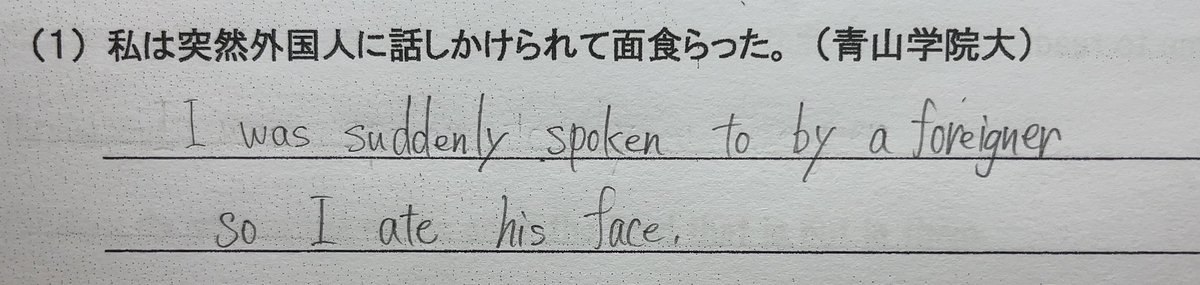 （1）私は突然外国人に話しかけられて面食らった。（青山学院大）
I was suddenly spoken to by a foreigner
so I ate his face.